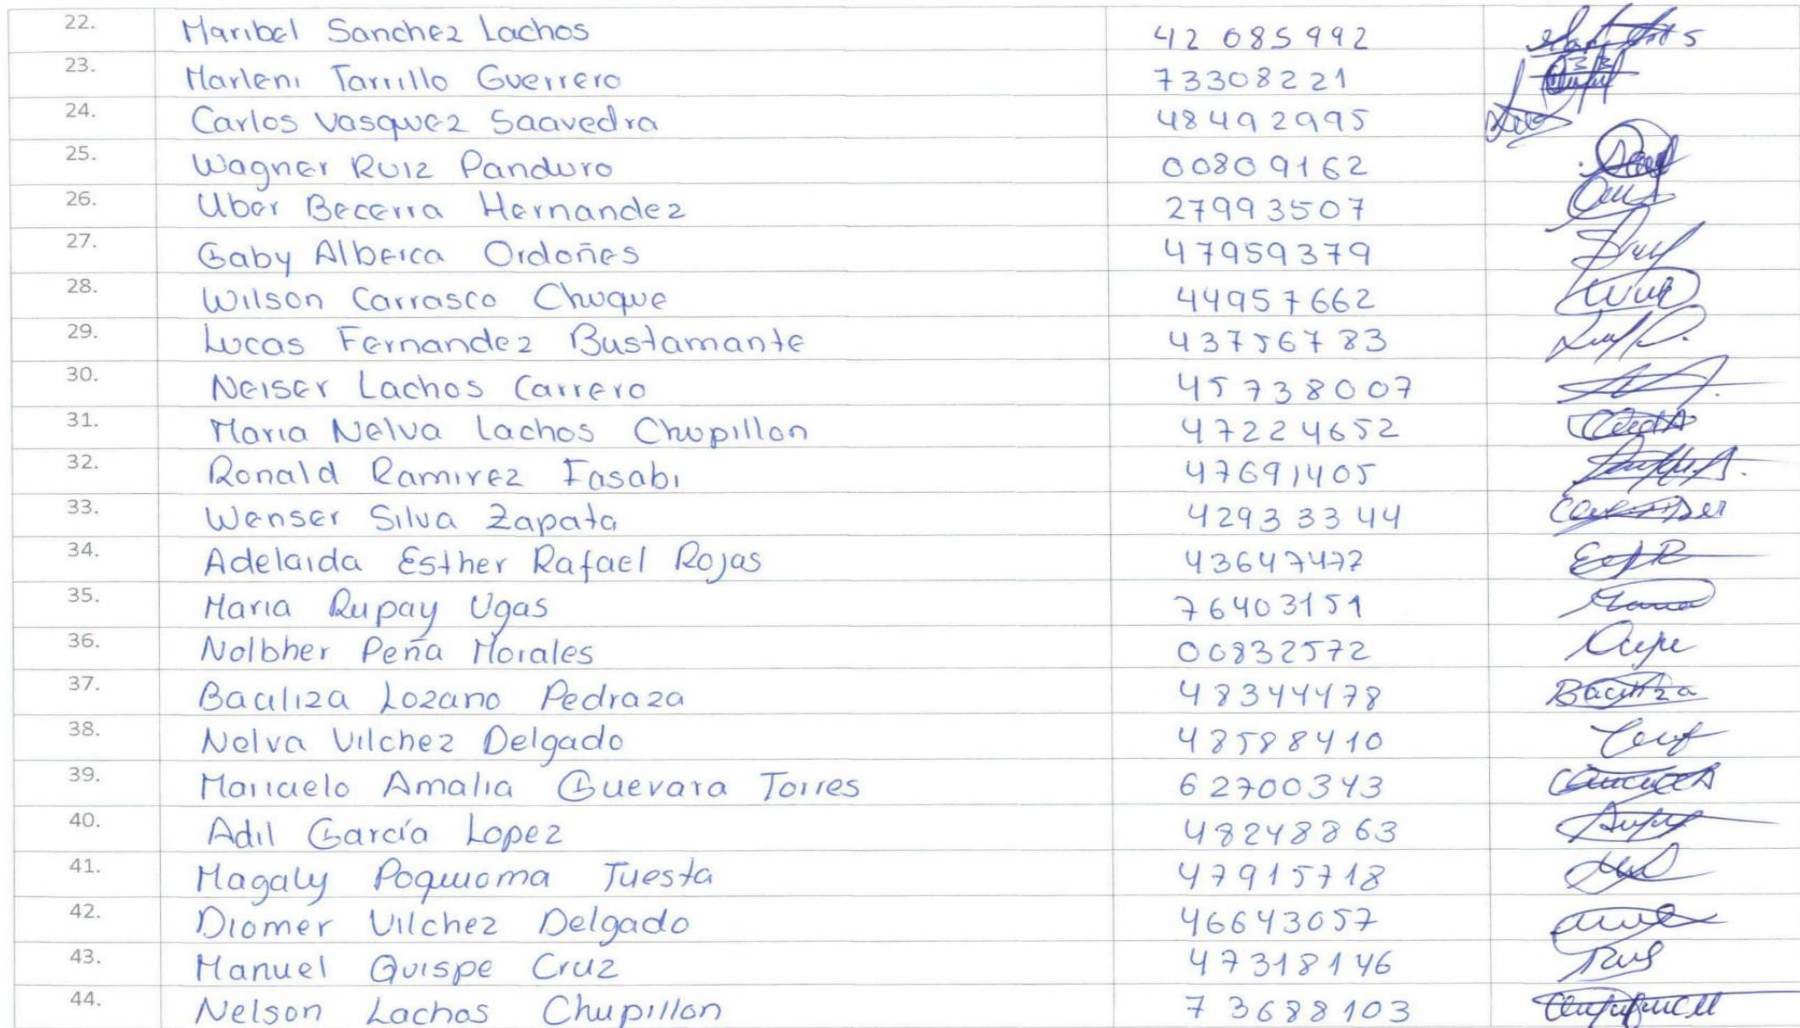 22. Maribel Sanchez Lachos 42 085992
23. Marleni Tarrillo Guerrero 73308221
24. Carlos Vasquez Saavedra 48492995
25. Wagner Ruiz Panduro 00809162
26. Uber Becerra Hernandez 27993507
27. Gaby Alberca Ordoñes 47959379
28. Wilson Carrasco Chuque 44957662
29. Lucas Fernandez Bustamante 43756783
30. Neiser Lachos Carrero 45738007
31. Maria Nelva Lachos Chupillon 47224652
32. Ronald Ramirez Fasabi 47691405
33. Wenser Silva Zapata 42933344
34. Adelaida Esther Rafael Rojas 43647472
35. Maria Rupay Ugas 76403151 Maria
36. Nolbher Peña Morales 00832572
37. Baciliza Lozano Pedraza 48344478
38. Nelva Vilchez Delgado 48588410
39. Maricielo Amalia Guevara Torres 62700343
40. Adil García Lopez 48248863
41. Magaly Poquioma Tuesta 47915718
42. Diomer Vilchez Delgado 46643057
43. Manuel Quispe Cruz 47318146
44. Nelson Lachos Chupillon 73688103